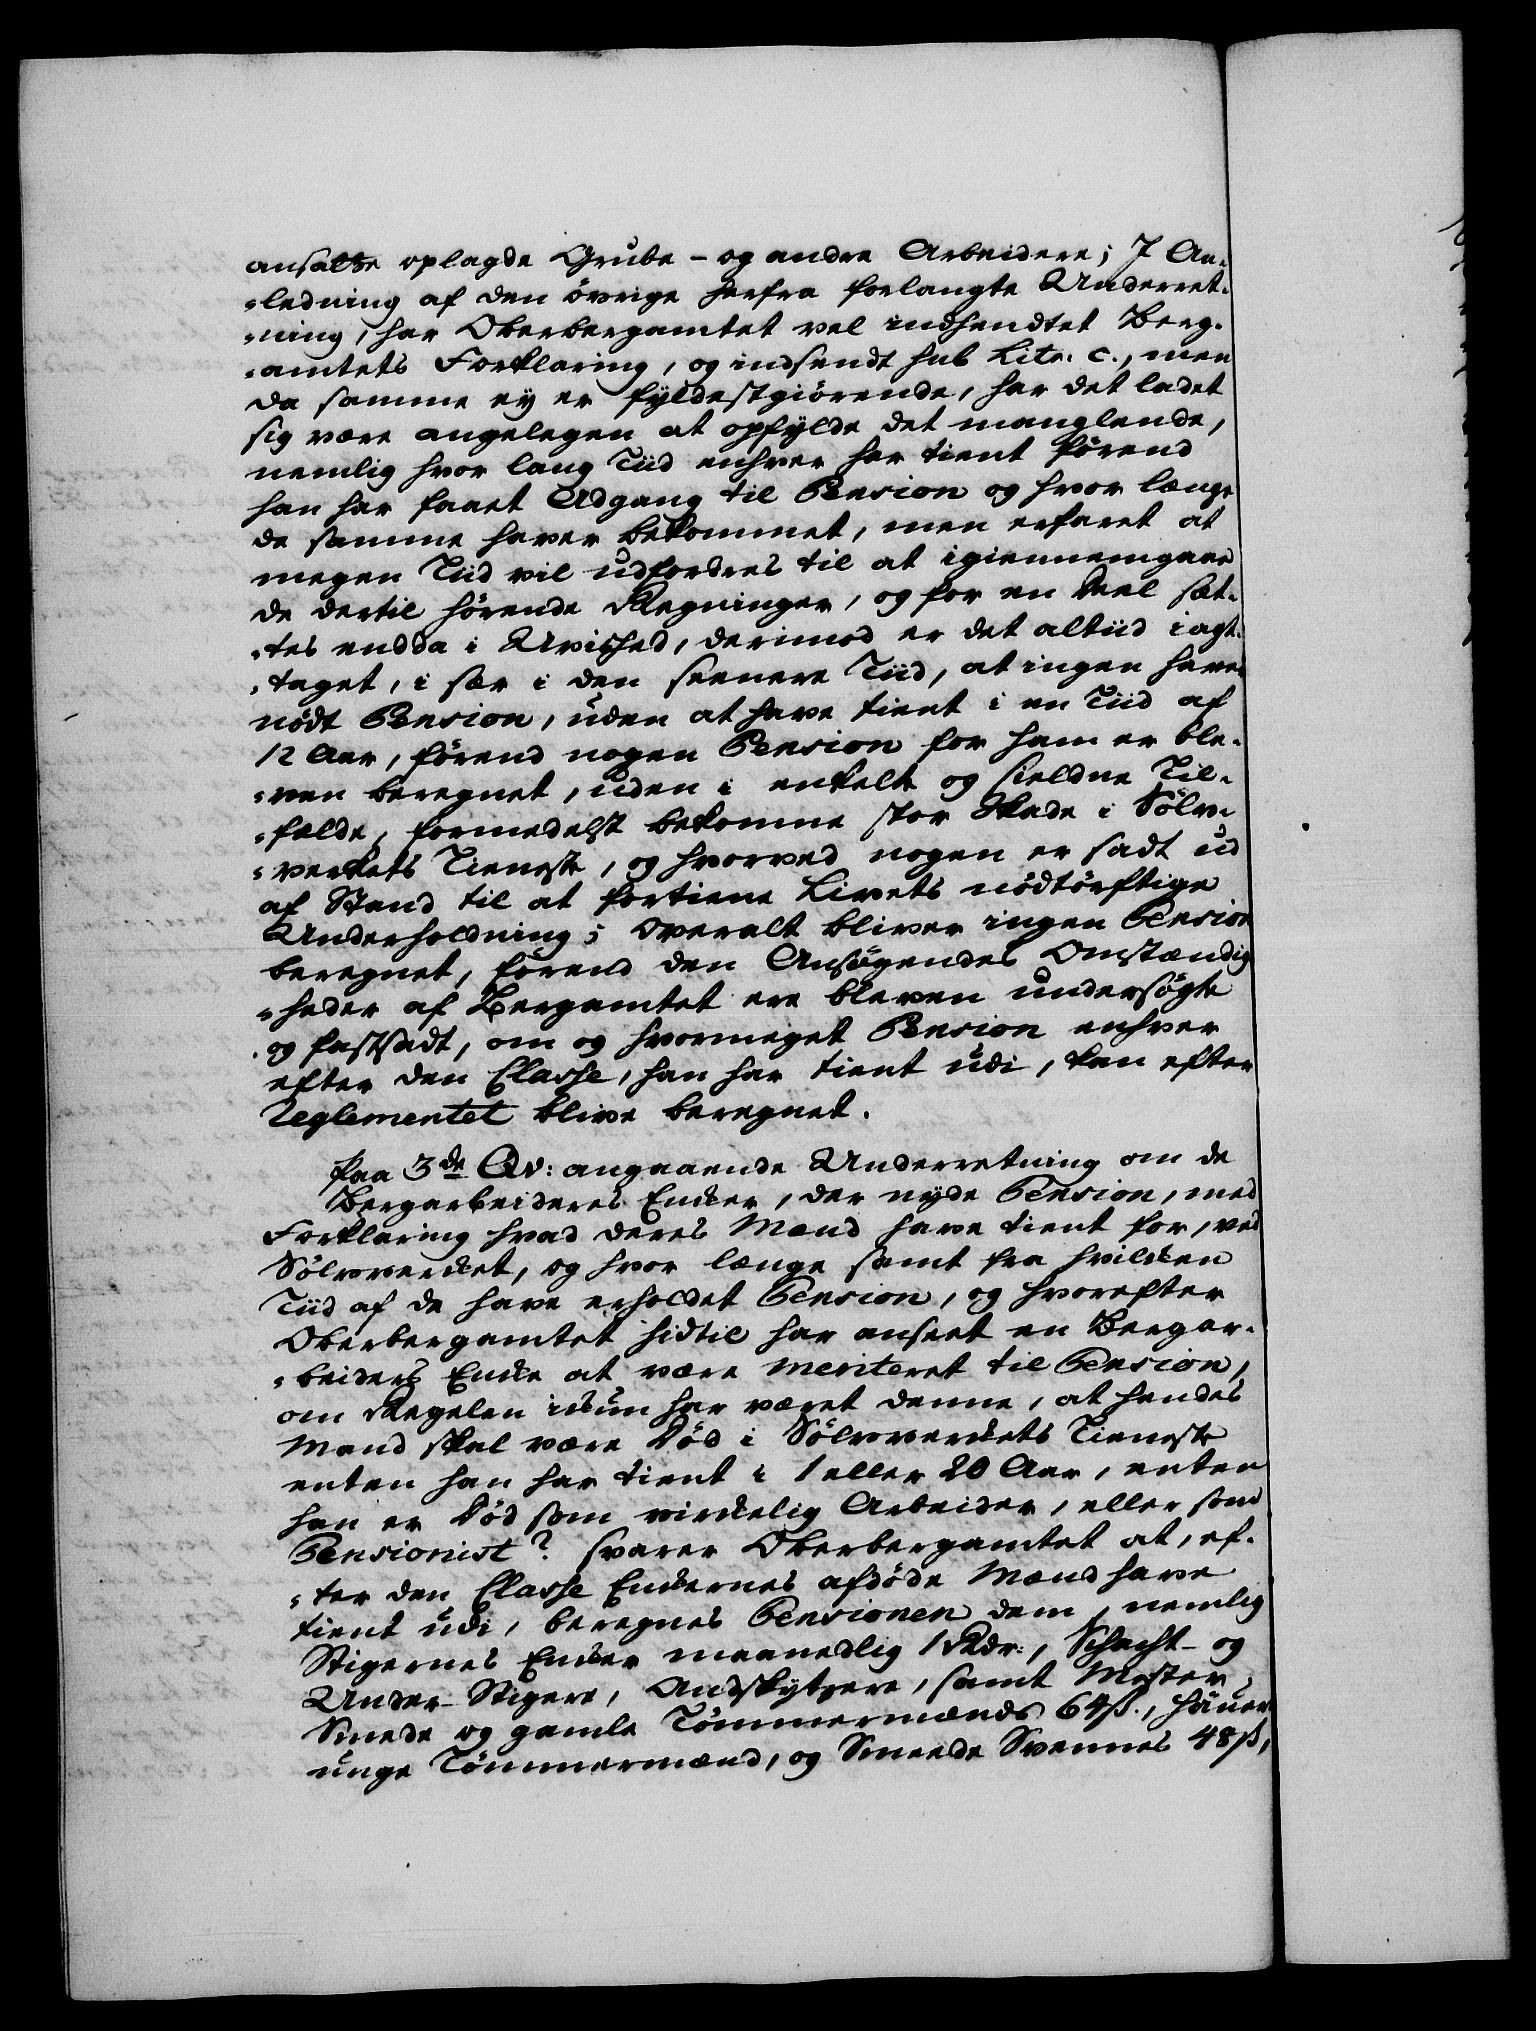 ansatte oplagde Grube- og andre Arbeidere; I An-
-ledning af den övrige herfra forlangte Underret-
-ning, har Oberbergamtet vel indhendtet Berg-
-amtets Forklaring, og indsendt sub Litr. C., men
da samme ey er fyldestgiörende, har det ladet
sig være angelegen at opfylde det manglende,
nemlig hvor lang Tiid enhver har tient förend
han har faaet Adgang til Pension og hvor længe
de samme haver bekommet, men erfaret at
megen Tiid vil udfordres til at igiennemgaae
de dertil hörende Regninger, og for en Deel sæt-
-tes endda i Uvished, derimod er det altiid iagt-
-taget, i sær i den seenere Tiid, at ingen haver
nödt Pension, uden at have tient i en Tiid af
12 Aar, förend nogen Pension for ham er ble-
-ven beregnet, uden i enkelte og sieldne Til-
-fælde, formedelst bekomne stor Skade i Sölv-
-verkets Tieneste, og hvorved nogen er sadt ud
af Stand til at fortiene Livets nödtörftige
Underholdning; Overalt bliver ingen Pension
beregnet, förend den Ansögendes Omstændig
-heder af Bergamtet ere bleven undersögte
og fastsadt, om og hvormeget Pension enhver
efter den Classe, han har tient udi, kan efter
Reglementet blive beregnet.
Paa 3de Qv: angaaende Underretning om de
Bergarbeideres Enker, der nyde Pension, med
Forklaring hvad deres Mænd have tient for, ved
Sölvverket, og hvor længe samt fra hvilken
Tiid af de have erholdet Pension, og hvorefter
Oberbergamtet hidtil har anseet en Bergar-
-beiders Enke at være meriteret til Pension,
om Regelen ickun har været denne, at hendes
Mand skal være död i Sölvverkets Tieneste
enten han har tient i 1 eller 20 Aar, enten
han er död som virkelig Arbeider, eller som
Pensionist? svarer Oberbergamtet at, ef-
-ter den Classe Enkernes afdöde Mænd have
tient udi, beregnes Pensionen dem, nemlig
Stigernes Enker maanedlig 1 Rdr:, Schacht- og
Under-Stigere, Undskytzere, samt Mester
Smede og gamle Tömmermænds 64 ß., Häuer
unge Tömmermænd, og Smede Svennes 48 ß,